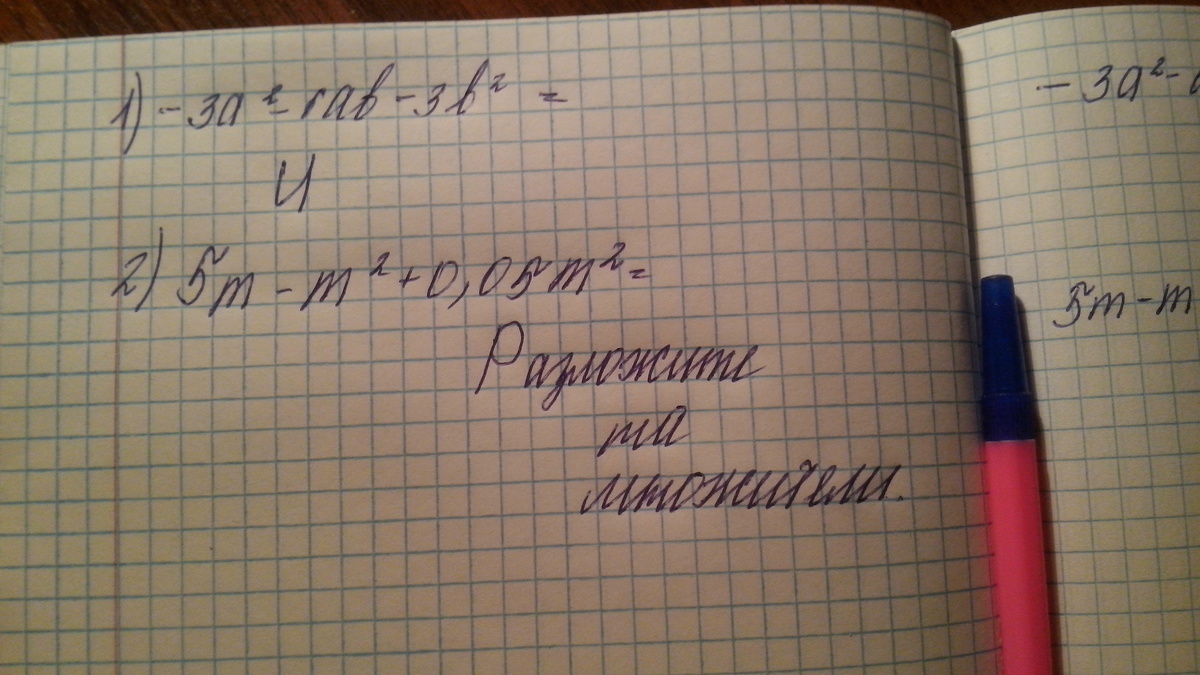 1) -3a²-6ab-3b² =
И
2) 5m-m²+0,05m²=
Разложите
на
множители.
-3a²-
5m-m